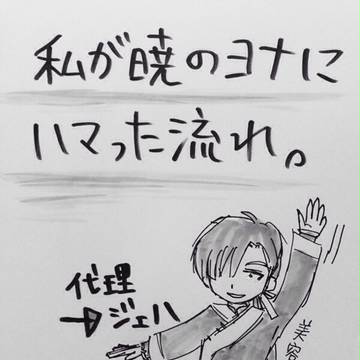 私が暁のヨナに
ハマった流れ。
代理
→ジェハ